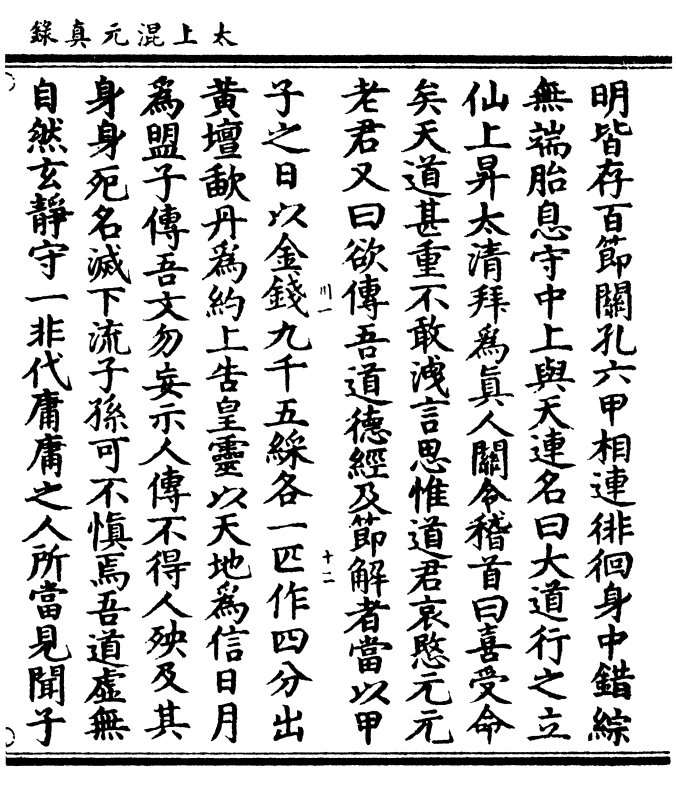 太上混元真錄
明皆存百節關孔六甲相連徘徊身中錯綜
無端胎息守中上與天連名曰大道行之立
仙上昇太清拜爲眞人關令稽首曰喜受命
矣天道甚重不敢洩言思惟道君哀愍元元
老君又曰欲傳吾道德經及節解者當以甲
川一
十二
子之日以金錢九千五綵各一匹作四分出
黃壇歃丹爲約上告皇靈以天地爲信日月
爲盟子傳吾文勿妄示人傳不得人殃及其
身身死名滅下流子孫可不愼焉吾道虛無
自然玄靜守一非代庸庸之人所當見聞子